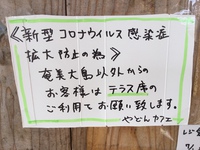 《新型コロナウイルス感染症
拡大防止の為》
奄美大島以外からの
お客様はテラス席の
ご利用でお願い致します。
やどんカフェ